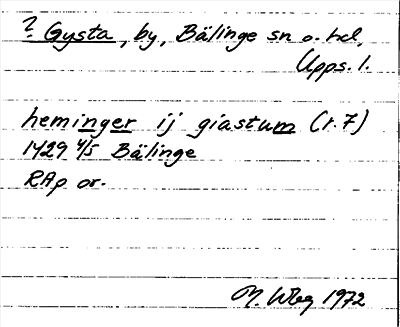 ? Gysta, by, Bälinge sn o. hd,
Upps. l.
heminger ij giastum (r. 7)
1429 4/5 Bälinge
RAp or.
1972